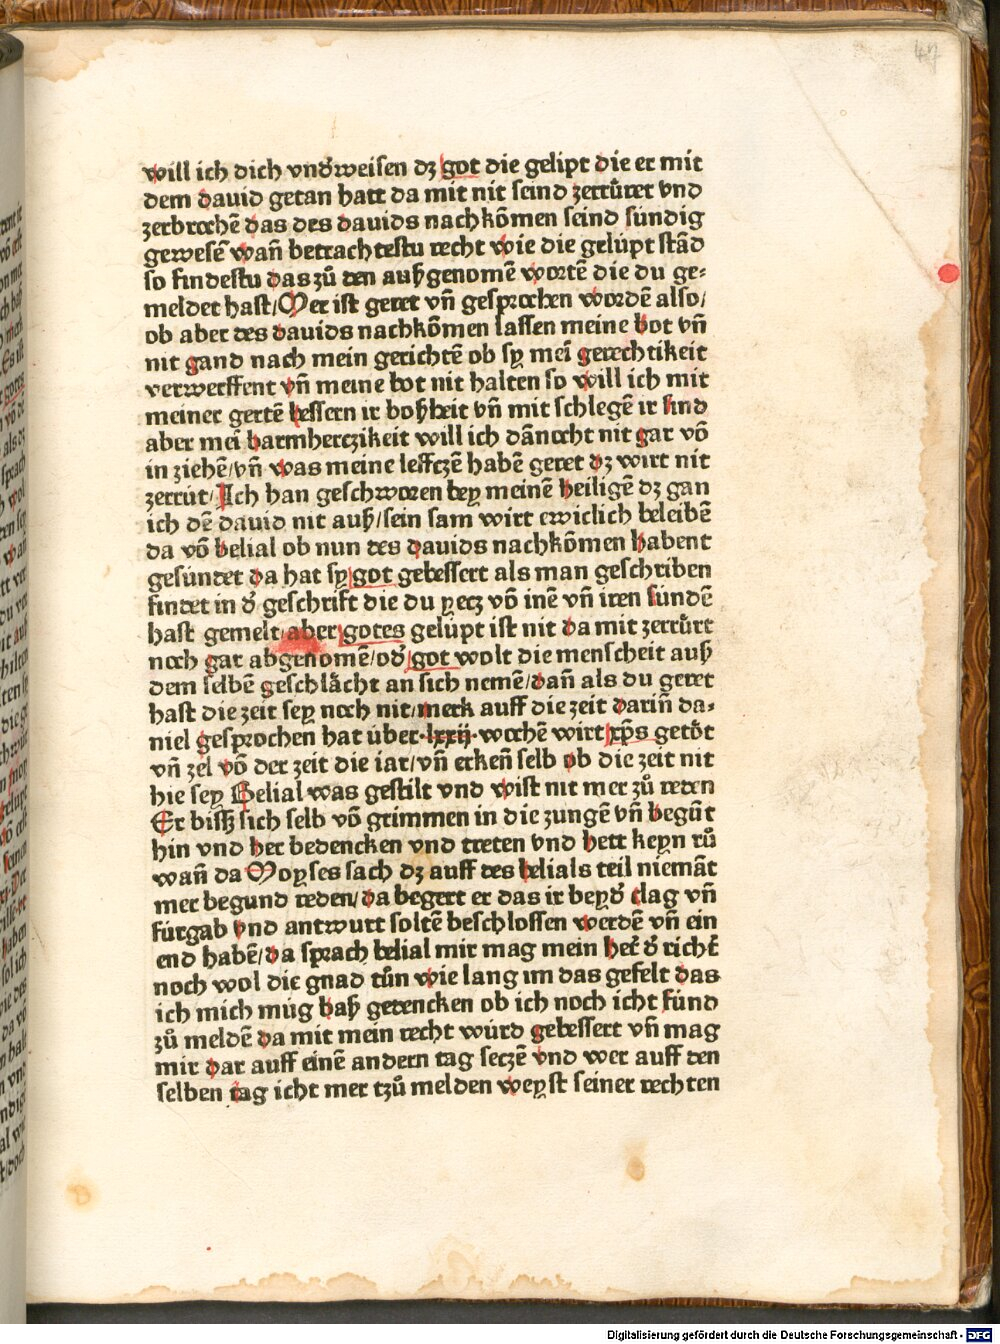 47
will ich dich vnd̕weisen dz got die gelipt die er mit
dem dauid getan hatt da mit nit seind zerrůret vnd
zerbrochē das des dauids nachkōmen seind sündig
gewesē wañ betrachtestu recht wie die gelüpt stād
so findestu das zů den außgenomē wortē die du ge⸗
meldet hast/Mer ist geret vñ gesprochen wordē also/
ob aber des dauids nachkōmen lassen meine bot vñ
nit gand nach mein gerichtē ob sy mei᷑ gerechtikeit
verwerffent vñ meine bot nit halten so will ich mit
meiner gertē bessern ir boßheit vñ mit schlegē ir sind
aber mei᷑ barmherczikeit will ich dānocht nit gar vō
in ziehē/vñ was meine leffczē habē geret dz wirt nit
zerrüt/Ich han geschworen bey meinē heiligē dz gan
ich dē dauid nit auß/sein sam wirt ewiclich beleibē
da vō belial ob nun des dauids nachkōmen habent
gesündet da hat sy got gebessert als man geschriben
findet in d̕ geschrift die du yecz vō inē vñ iren sündē
hast gemelt aber gotes gelüpt ist nit da mit zerrůrt
noch gar abgenomē/od̕ got wolt die menscheit auß
dem selbē geschlächt an sich nemē/dañ als du geret
hast die zeit sey noch nit/merk auff die zeit dariñ da⸗
niel gesprochen hat über·lxxij·wochē wirt xp̄s getöt
vñ zel vō der zeit die iar/vñ erkeñ selb ob die zeit nit
hie sey Belial was gestilt vnd wist nit mer zů reden
Er bissz sich selb vō grimmen in die zungē vñ begūt
hin vnd her bedencken vnd treten vnd hett keyn rů
wañ da Moyses sach dz auff des belials teil niemāt
mer begund reden/da begert er das ir beyd̕ clag vñ
fürgab vnd antwurt soltē beschlossen werdē vñ ein
end habē/da sprach belial mir mag mein her̃ d̕ richt̕
noch wol die gnad tůn wie lang im das gefelt das
ich mich müg baß gedencken ob ich noch icht fünd
zů meldē da mit mein recht würd gebessert vñ mag
mir dar auff einē andern tag seczē vnd wer auff den
selben tag icht mer tzů melden weyst seiner rechten
Digitalisierung gefördert durch die Deutsche Forschungsgemeinschaft - DFG